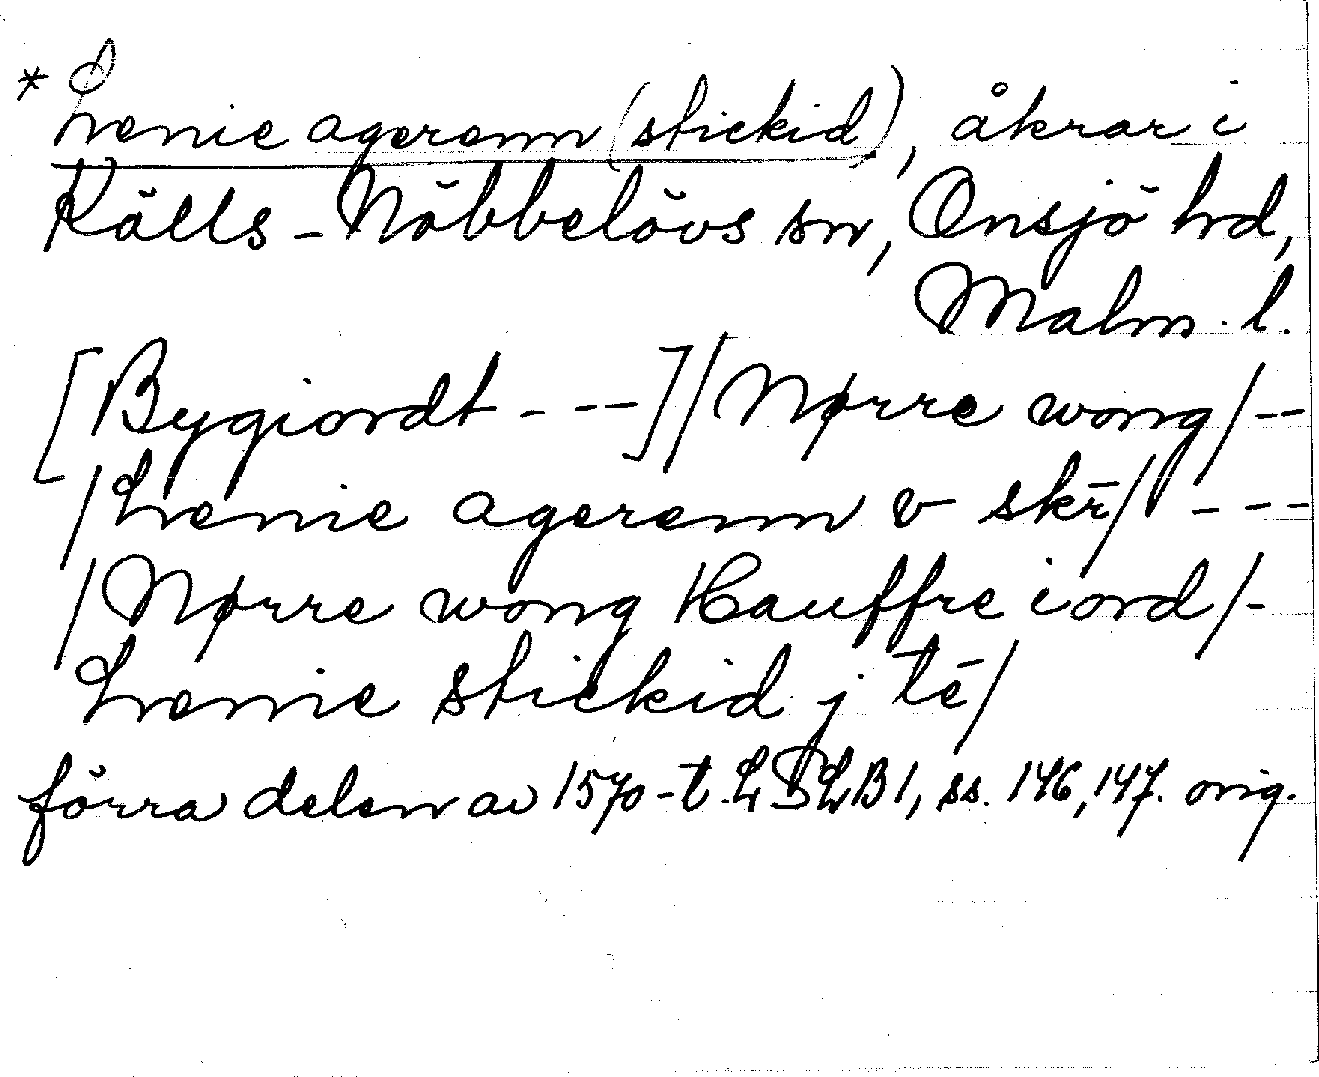 * Lrenie agerenn (stickid), åkrar i
Källs-Nöbbelövs sn, Onsjö hd,
Malm. l.
[Bygiordt - --] /Nørre wong/ --
/Lrenie agerenn v skr̄/ ---
/Nørre wong Hauffre iord/ -
Lrenie stickid j tē/
förra delen av 1570-t. LDLB 1, ss. 146, 147. orig.